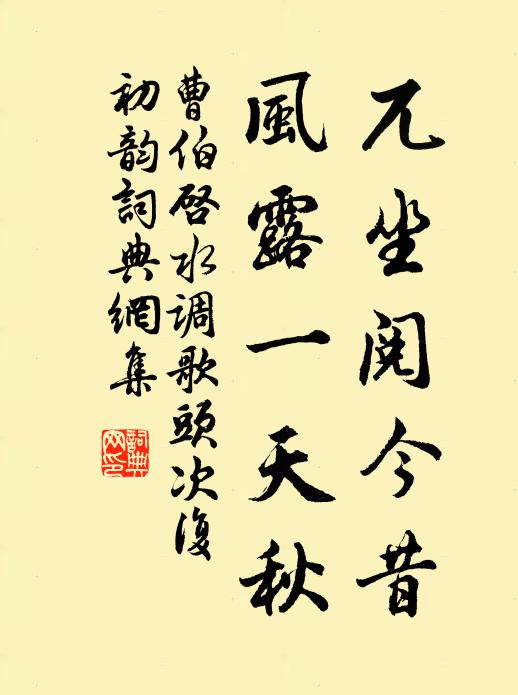 兀坐閱今昔
風露一天秋
曹伯啓水調歌頭次復
初韵詞典網集
詞典网印